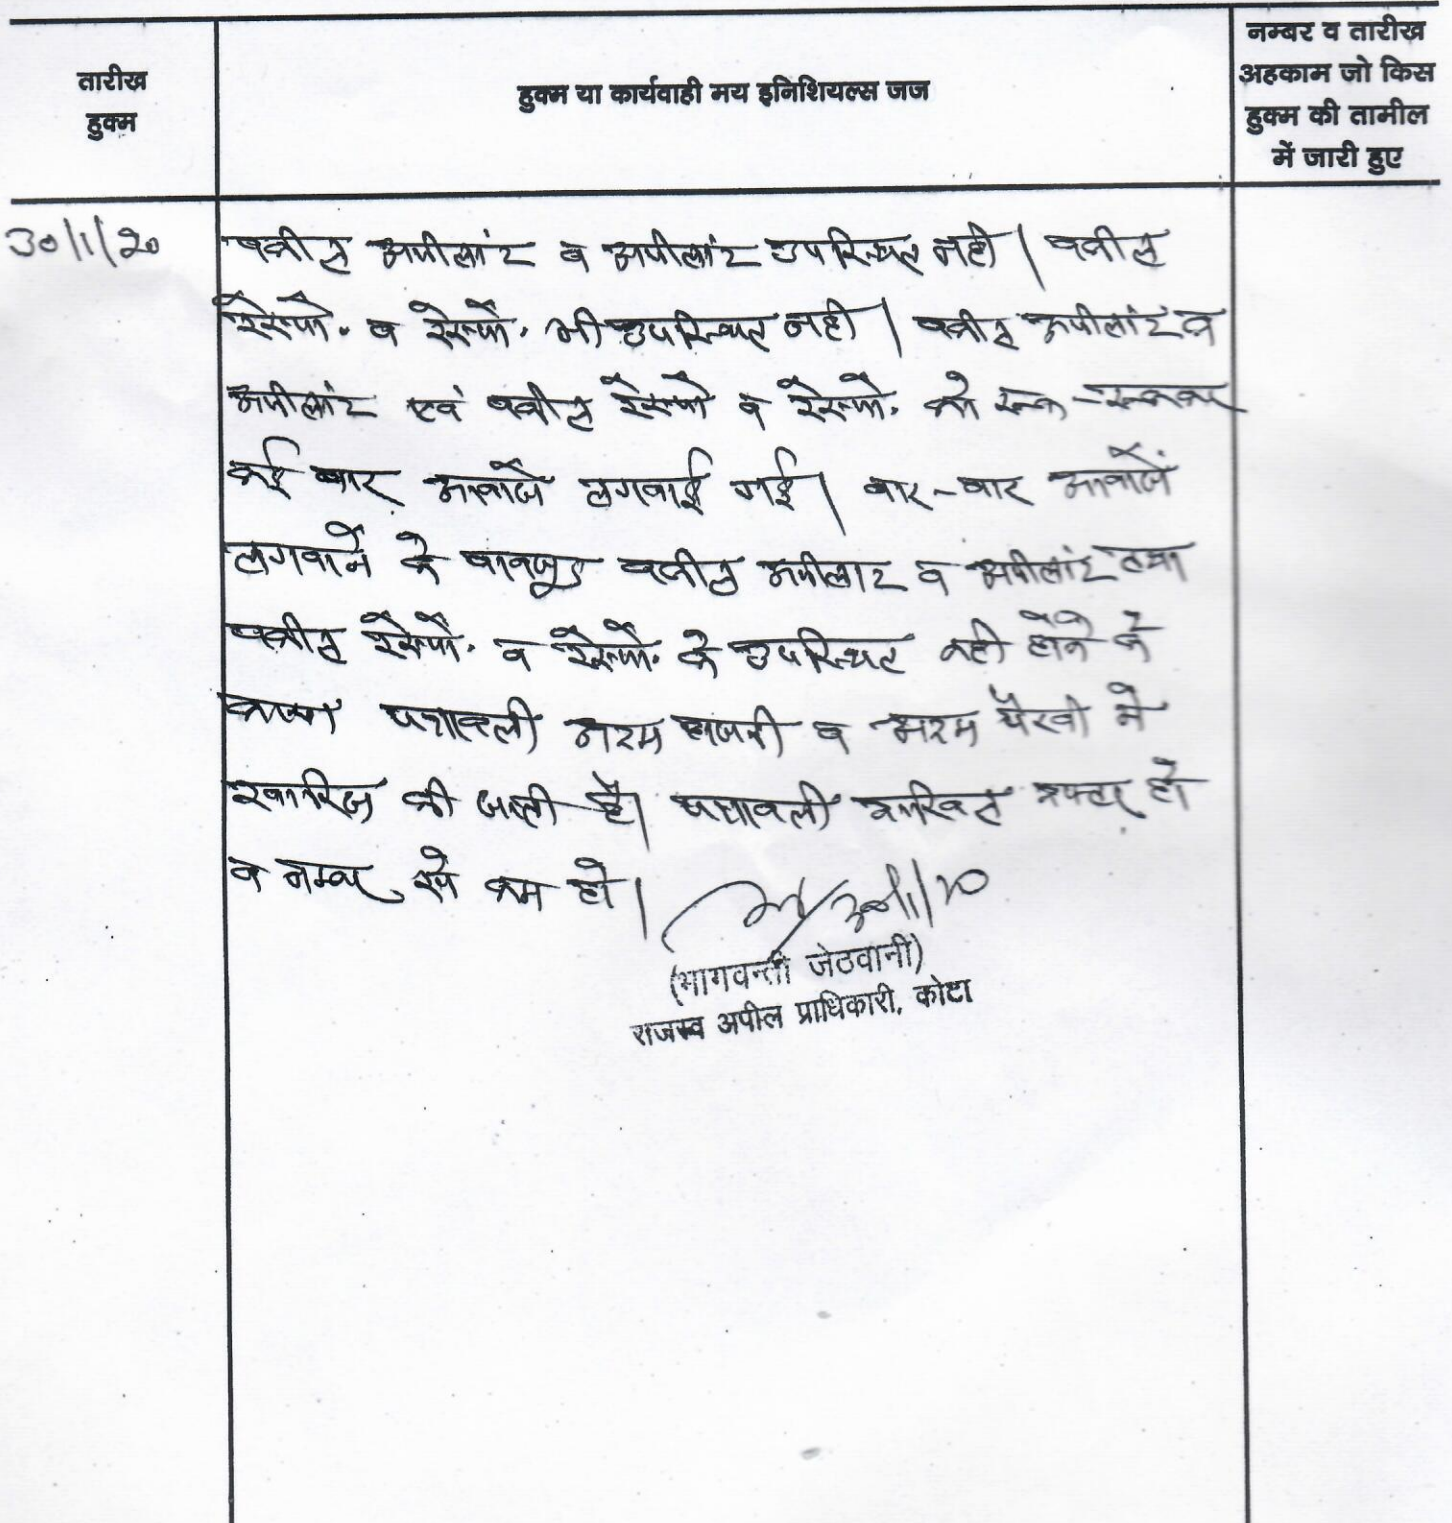 तारीख
हुक्म
हुक्म या कार्यवाही मय इनिशियल्स जज
नम्बर व तारीख
अहकाम जो किस
हुक्म की तामील
में जारी हुए
30/1/20
वकील अपीलांट व अपीलांट उपस्थित नही । वकील
रेस्पो. व रेस्पो. भी उपस्थित नही । वकील अपीलांट व
अपीलांट एवं वकील रेस्पो व रेस्पो. को रूक-रूककर
कई बार आवाजे लगवाई गई । बार-बार आवाजें
लगवाने के बावजूद वकील अपीलांट व अपीलांट तथा
वकील रेस्पो. व रेस्पो. के उपस्थित नही होने के
कारण पत्रावली अदम हाजरी व अदम पैरवी मे
खारिज की जाती है। पत्रावली दाखिल दफ्तर हो
व नम्बर से कम हो ।
30/1/20
(भागवन्ती जेठवानी)
राजस्व अपील प्राधिकारी, कोटा